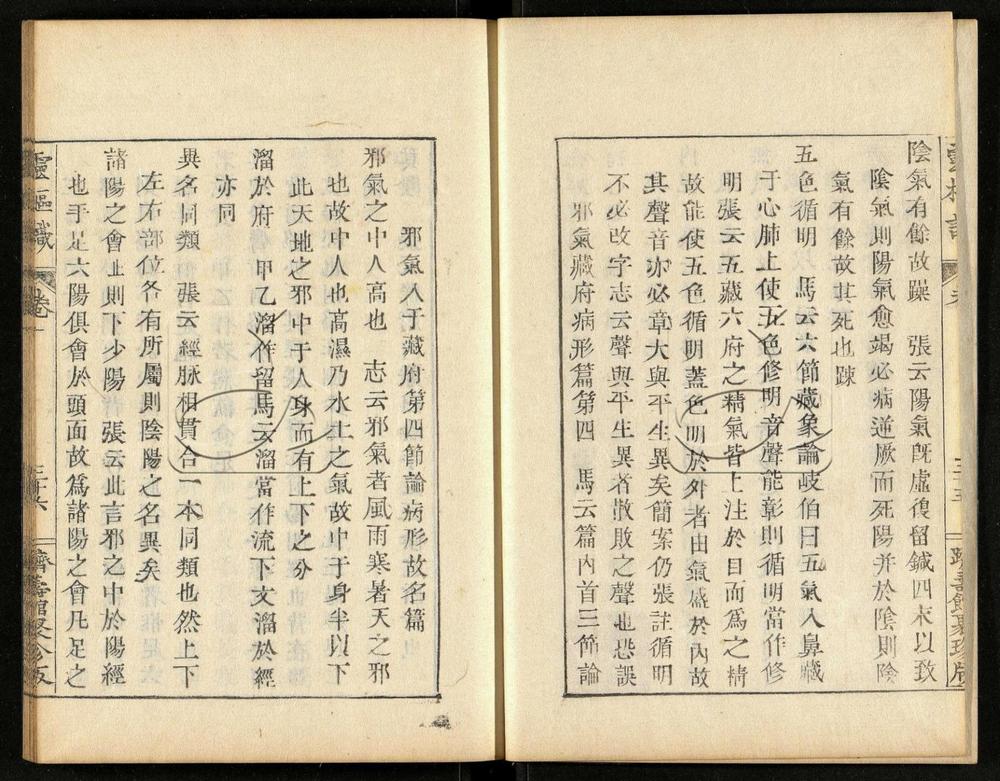 靈樞識
卷一
三十五
躋壽館聚珍版
陰氣有餘故躁　張云陽氣旣虛復留鍼四末以致
陰氣則陽氣愈竭必病逆厥而死陽并於陰則陰
氣有餘故其死也踈
五色循明　馬云六節藏象論岐伯曰五氣入鼻藏
于心肺上使五色修明音聲能彰則循明當作修
明張云五藏六府之精氣皆上注於目而爲之精
故能使五色循明蓋色明於外者由氣盛於內故
其聲音亦必章大與平生異矣簡案仍張註循明
不必改字志云聲與平生異者散敗之聲也恐誤
邪氣藏府病形篇第四　馬云篇內首三節論
邪氣入于藏府第四節論病形故名篇
邪氣之中人高也　志云邪氣者風雨寒暑天之邪
也故中人也高濕乃水土之氣故中于身半以下
此天地之邪中于人身而有上下之分
溜於府　甲乙溜作留馬云溜當作流下文溜於經
亦同
異名同類　張云經脉相貫合一本同類也然上下
左右部位各有所屬則陰陽之名異矣
諸陽之會止則下少陽張云此言邪之中於陽經
也手足六陽俱會於頭面故爲諸陽之會凡足之
靈樞識
卷一
三十六
躋壽館聚珍版